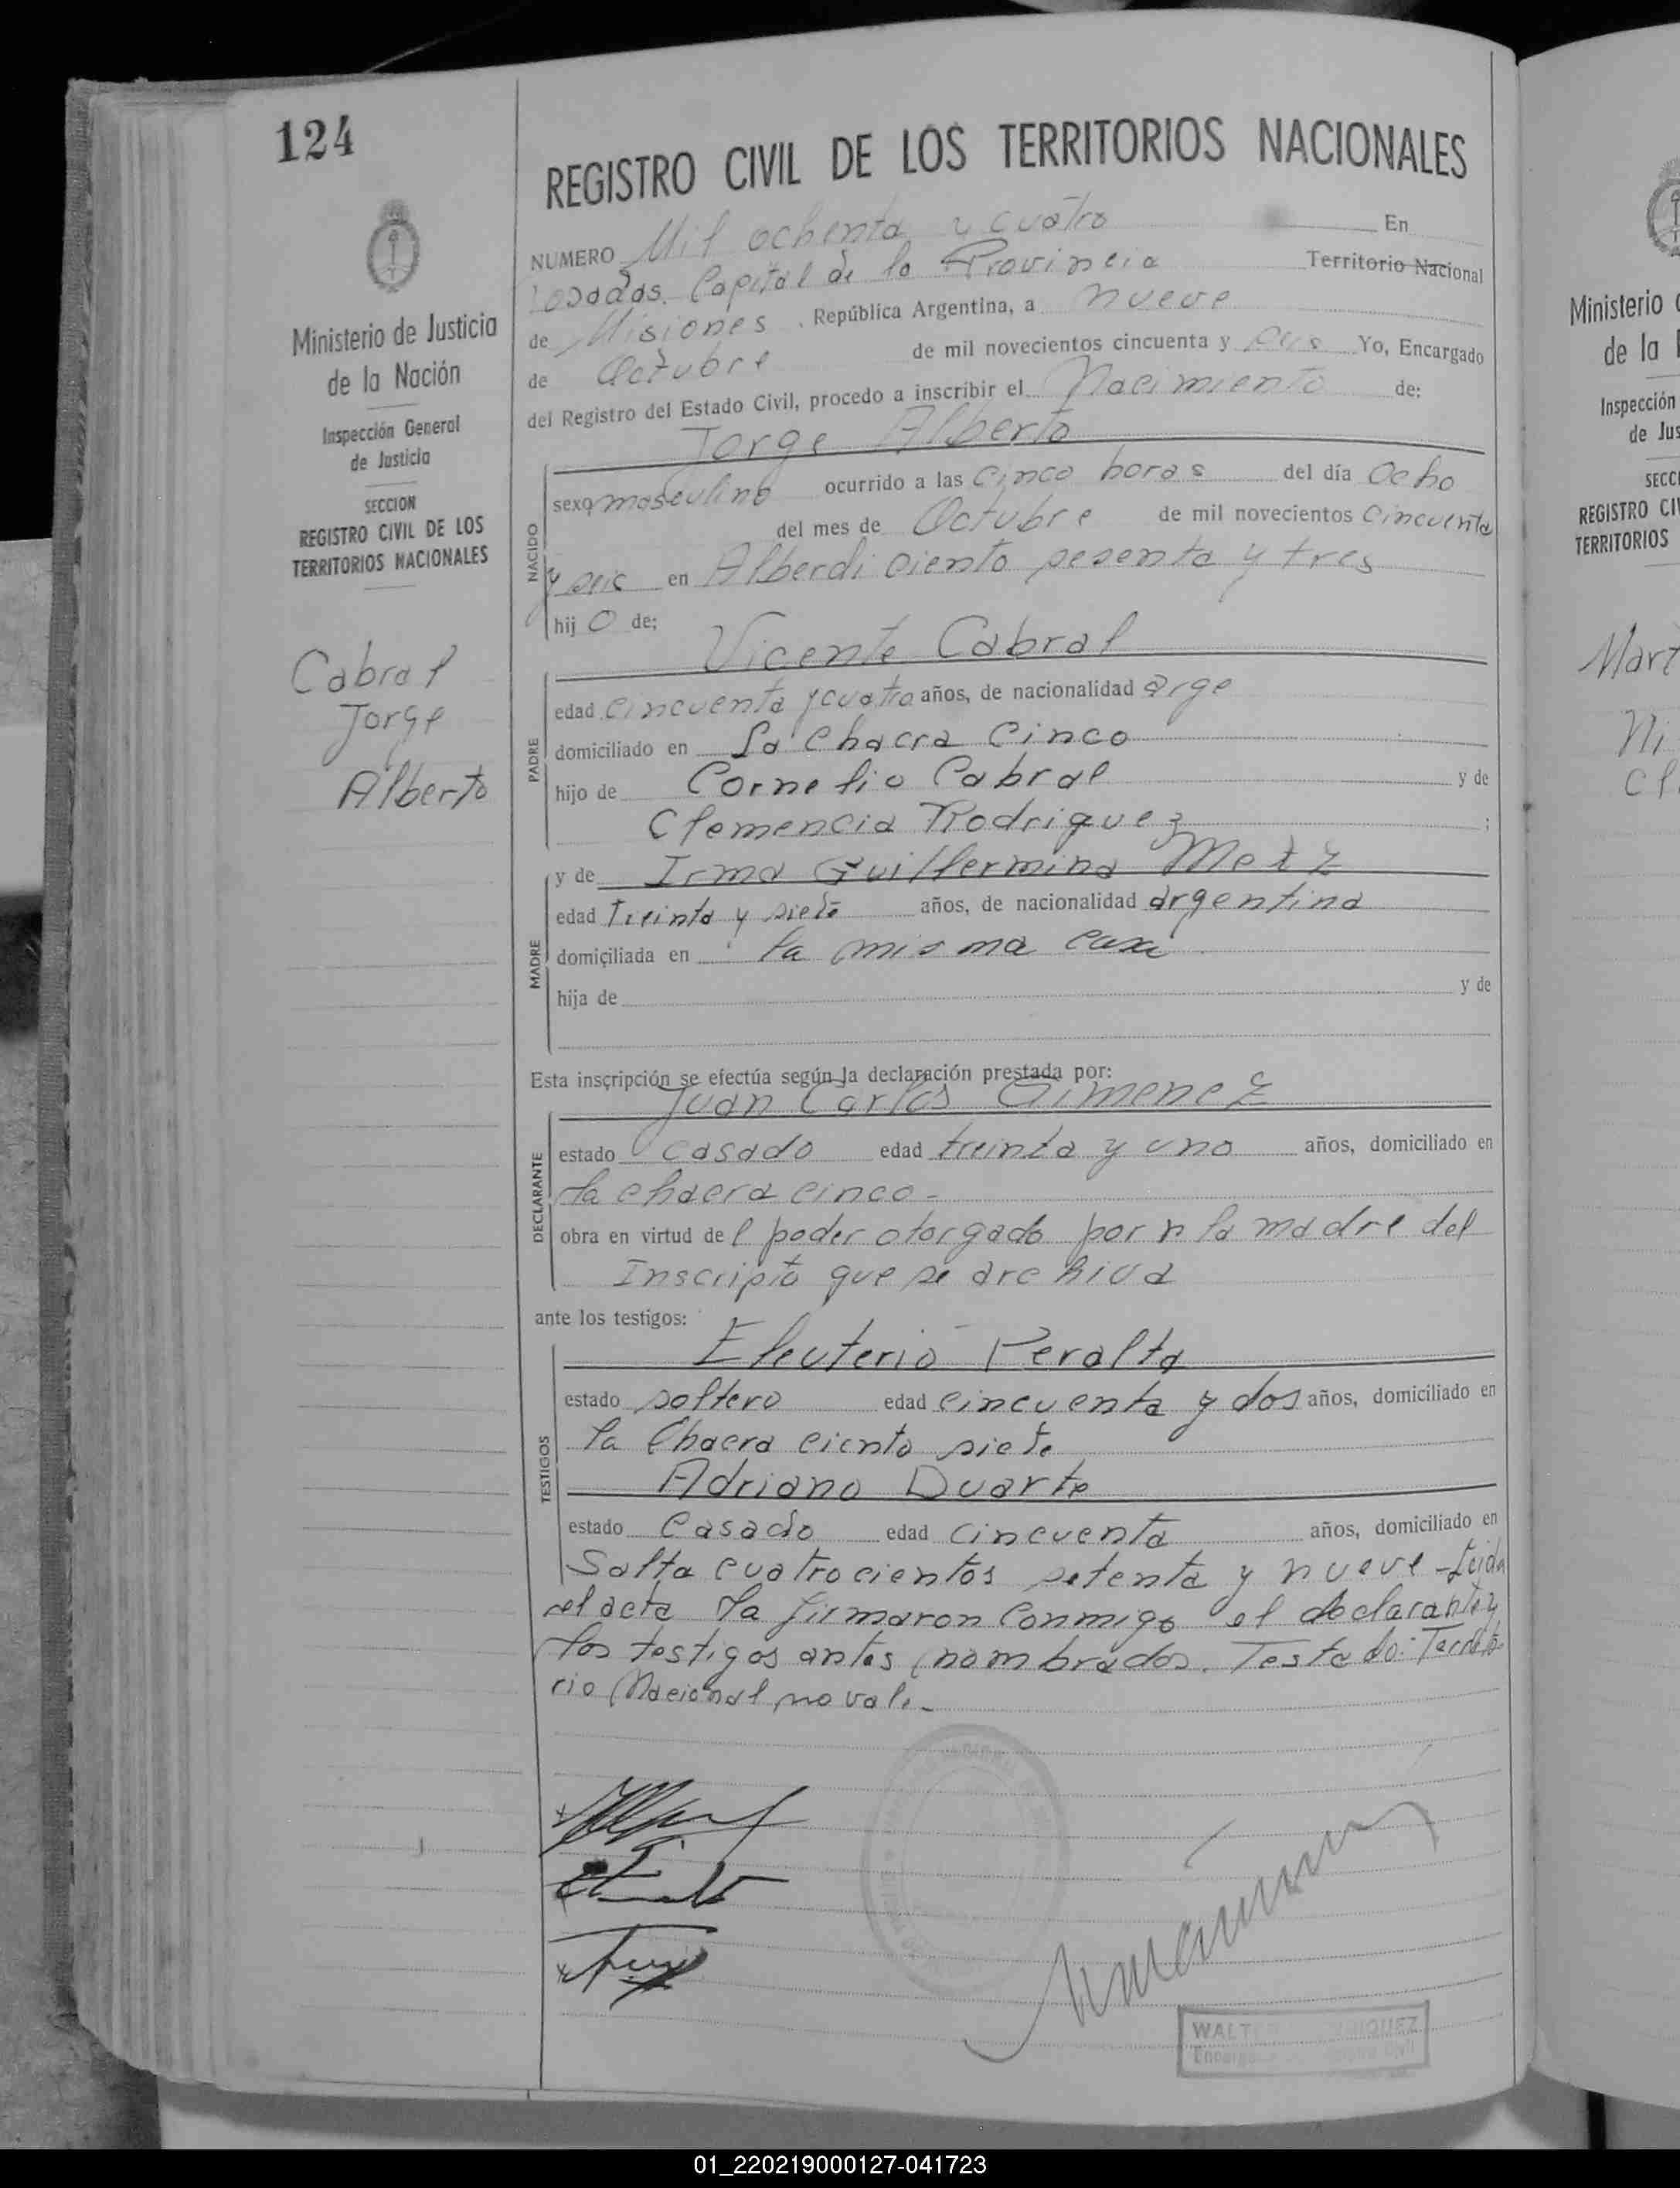 124
Ministerio de Justicia
de la Nación
Inspección General
de Justicia
SECCION
REGISTRO CIVIL DE LOS
TERRITORIOS NACIONALES
Cabral
Jorge
Alberto
REGISTRO CIVIL DE LOS TERRITORIOS NACIONALES
NUMERO Mil ochenta y cuatro En
Posadas. Capital de la Provincia Territorio Nacional
de Misiones, República Argentina, a nueve
de Octubre de mil novecientos cincuenta y seis Yo, Encargado
del Registro del Estado Civil, procedo a inscribir el Nacimiento de:
Jorge Alberto
NACIDO
sexo masculino ocurrido a las cinco horas del día Ocho
del mes de Octubre de mil novecientos Cincuenta
y seis en Alberdi ciento sesenta y tres
hij o de:
Vicente Cabral
PADRE
edad cincuenta y cuatro años, de nacionalidad arge
domiciliado en La Chacra Cinco
hijo de Cornelio Cabral y de
Clemencia Rodriguez ;
MADRE
y de Irma Guillermina Metz
edad Treinta y siete años, de nacionalidad argentina
domiciliada en la misma casa
hija de y de
Esta inscripción se efectúa según la declaración prestada por:
Juan Carlos Gimenez
DECLARANTE
estado casado edad treinta y uno años, domiciliado en
la chacra cinco -
obra en virtud de l poder otorgado por n la madre del
Inscripto que se archiva
ante los testigos:
Eleuterio Peralta
TESTIGOS
estado soltero edad cincuenta y dos años, domiciliado en
la Chacra ciento siete
Adriano Duarte
estado Casado edad cincuenta años, domiciliado en
Salta cuatrocientos setenta y nueve - Leida
el acta la firmaron conmigo el declarante y
los testigos antes nombrados. Testado: Territo-
rio Nacional no vale -
WALT
Ministerio
de la
Inspección
de Jus
SECC
REGISTRO CI
TERRITORIOS
Mart
Ni
Cl
01_220219000127-041723